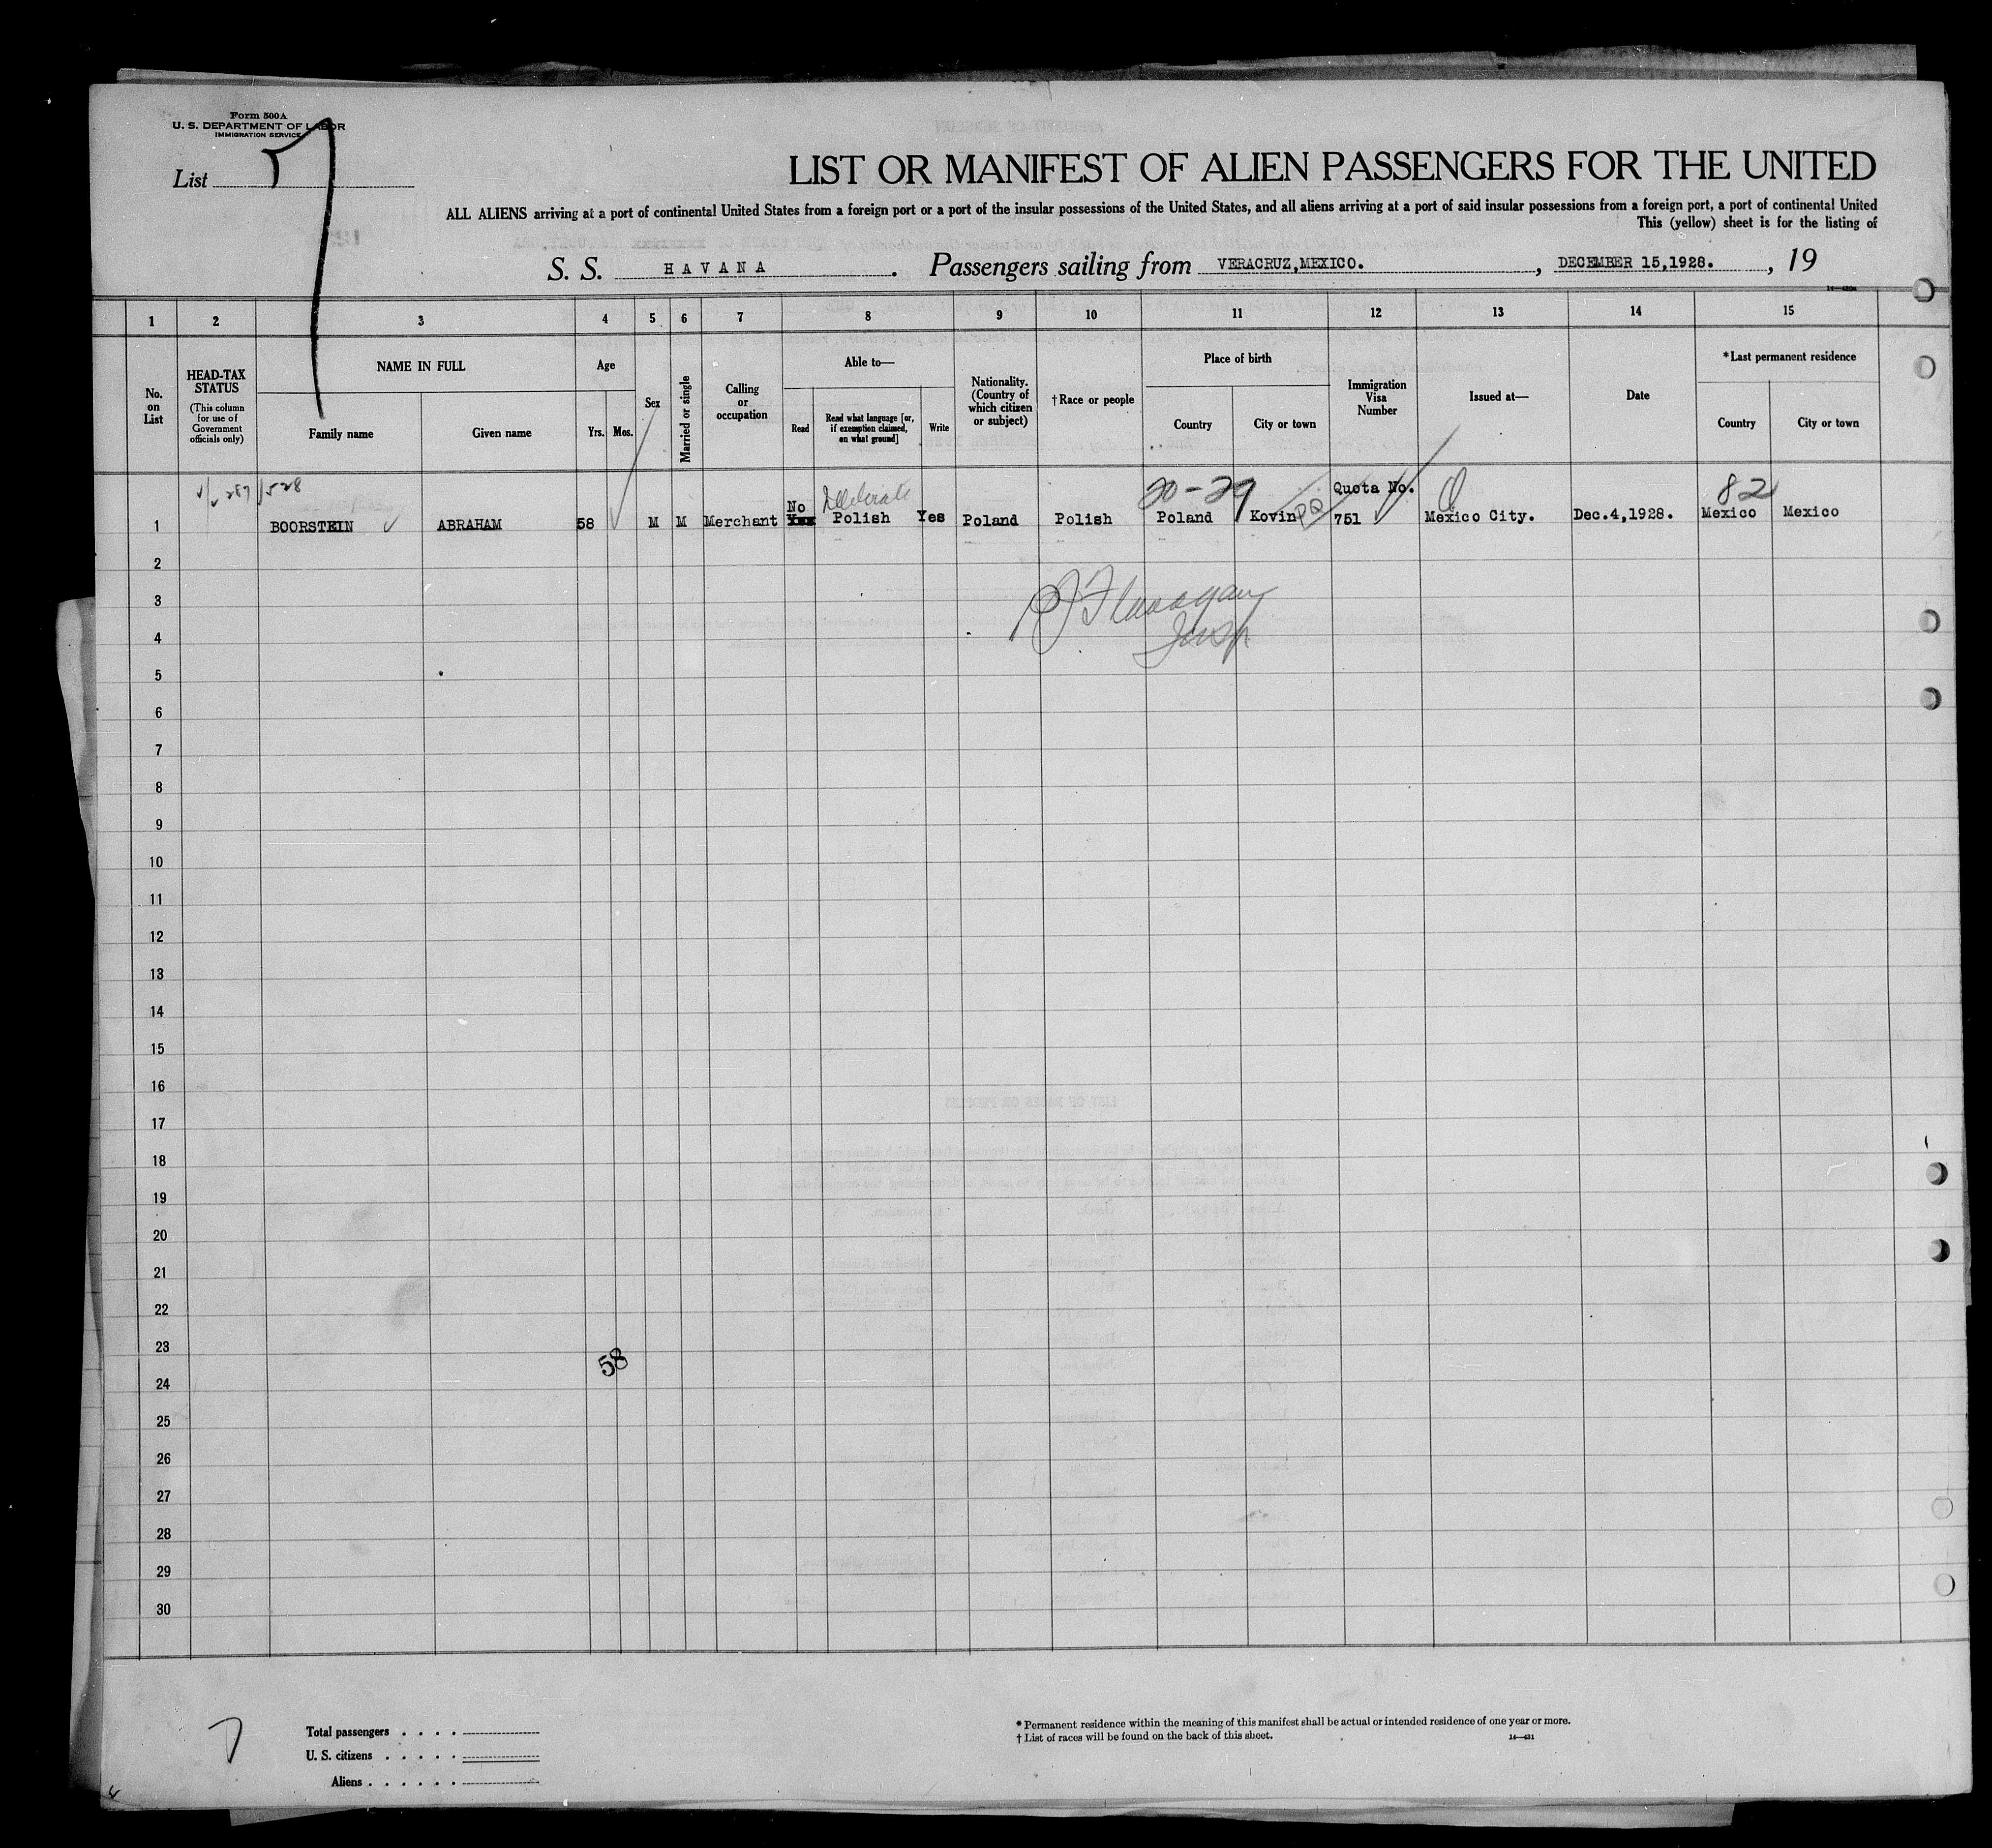 Form 500A
U. S. DEPARTMENT OF LABOR
IMMIGRATION SERVICE
List 7
LIST OR MANIFEST OF ALIEN PASSENGERS FOR THE UNITED
ALL ALIENS arriving at a port of continental United States from a foreign port or a port of the insular possessions of the United States, and all aliens arriving at a port of said insular possessions from a foreign port, a port of continental United
This (yellow) sheet is for the listing of
S. S. HAVANA. Passengers sailing from VERACRUZ,MEXICO., DECEMBER 15,1928., 19
1 2 3 4 5 6 7 8 9 10 11 12 13 14 15
No. on List
HEAD-TAX STATUS
(This column for use of Government officials only)
NAME IN FULL
Family name
Given name
Age
Yrs.
Mos.
Sex
Married or single
Calling or occupation
Able to—
Read
Read what language [or, if exemption claimed, on what ground]
Write
Nationality. (Country of which citizen or subject)
†Race or people
Place of birth
Country
City or town
Immigration Visa Number
Issued at—
Date
*Last permanent residence
Country
City or town
No Illiterate 20-29 Quota No. 82
1 BOORSTEIN ABRAHAM 58 M M Merchant Yes Polish Yes Poland Polish Poland Kovin PQ 751 Mexico City. Dec.4,1928. Mexico Mexico
2
3 Flanagan
4 Insp
5
6
7
8
9
10
11
12
13
14
15
16
17
18
19
20
21
22
23
58
24
25
26
27
28
29
30
7
Total passengers . . . .
U. S. citizens . . . . .
Aliens . . . . . .
* Permanent residence within the meaning of this manifest shall be actual or intended residence of one year or more.
† List of races will be found on the back of this sheet.
14—431